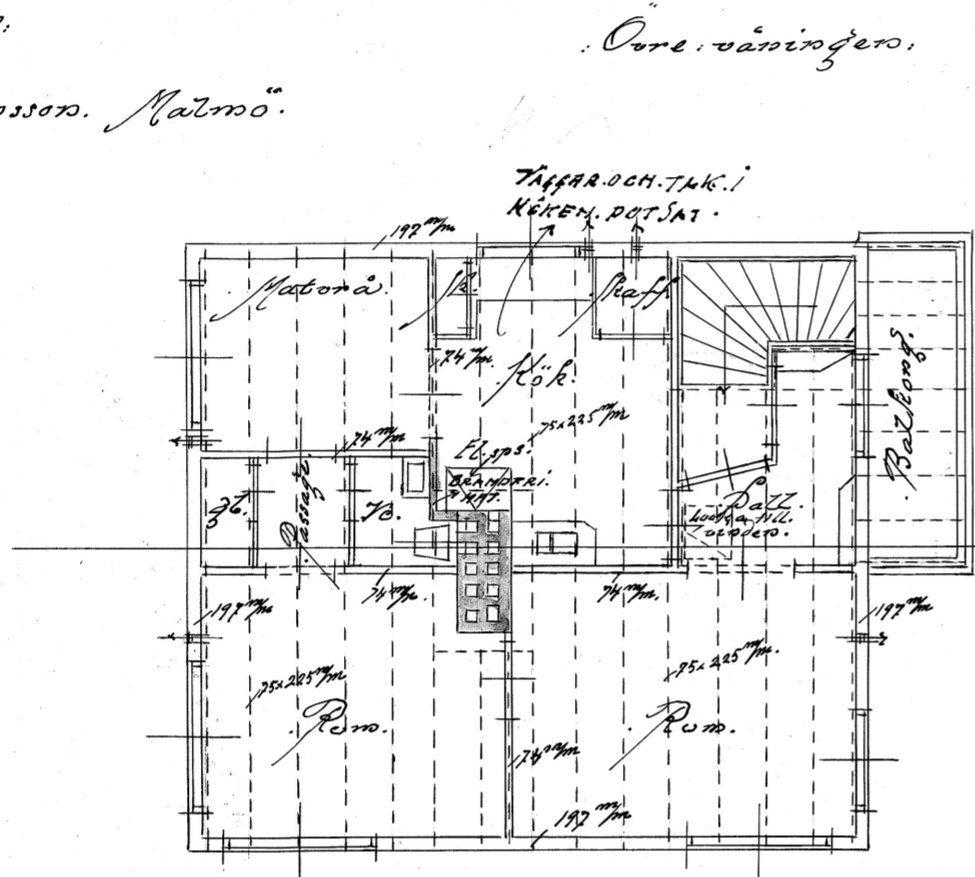 : Övre : våningen :
sson. Malmö.
VÄGGAR. OCH. TAK. I
KÖKEN. PUTSAT.
197 m/m
Matvrå.
Skaff
74 m/m.
Kök.
75x225 m/m
74 m/m
El. sps.
BRANDFRI.
MAT.
Passage.
Hall.
Lucka till.
vinden.
Balkong.
197 m/m
74 m/m.
74 m/m.
197 m/m
75x225 m/m
75x225 m/m.
Rum.
Rum.
74 m/m
197 m/m